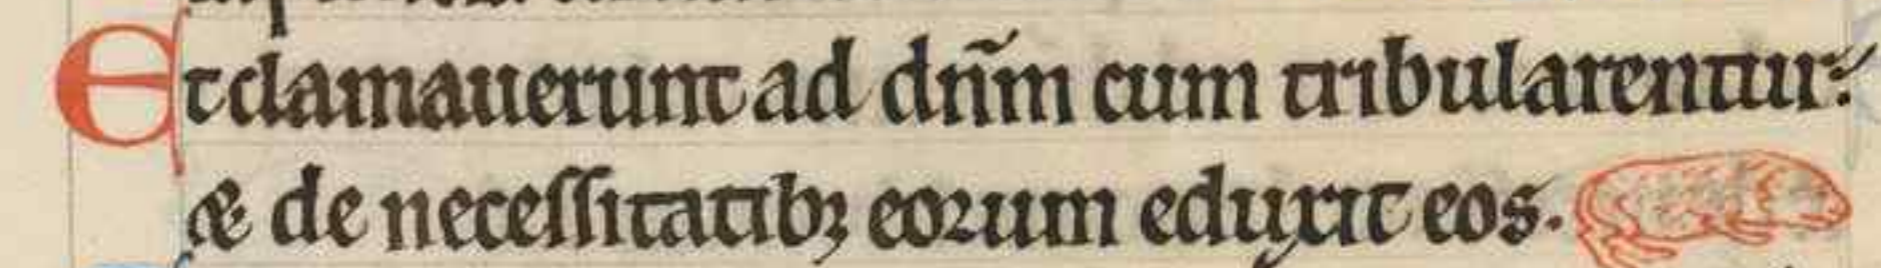 Et clamauerunt ad dn̄m cum tribularentur:
& de neceſſitatibꝫ eoꝝum eduxit eos.